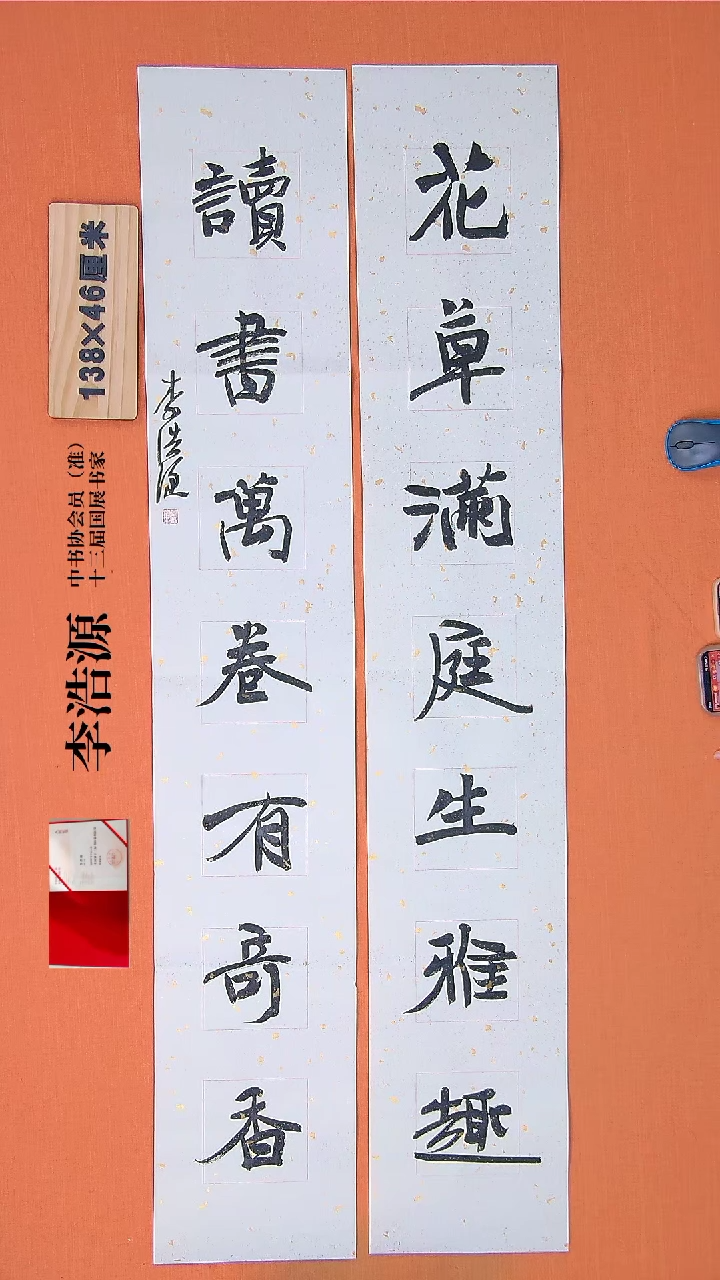 花草滿庭生雅趣
讀書萬卷有奇香
李浩源
138×46厘米
中书协会员（准）
十三届国展书家
李浩源